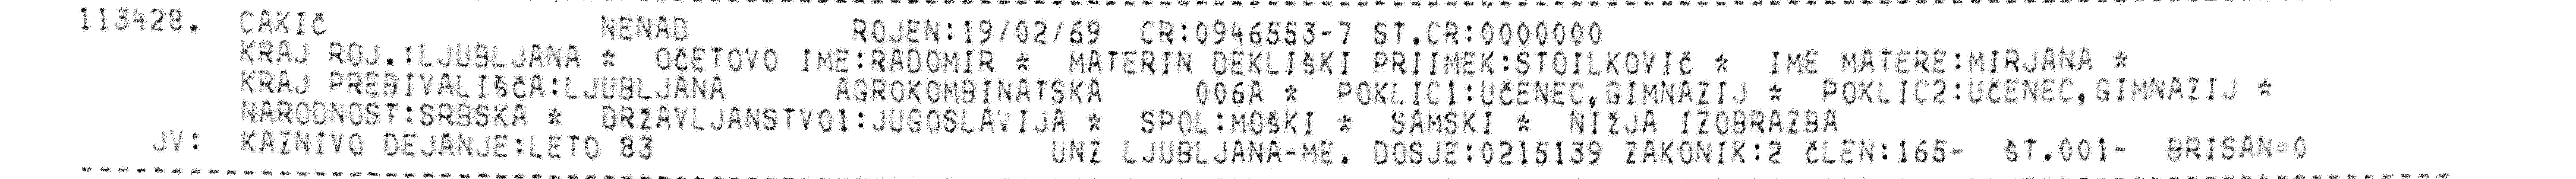 113428. CAKIČ NENAD ROJEN:19/02/69 CR:0946553-7 ST.CR:0000000
KRAJ ROJ.:LJUBLJANA * OČETOVO IME:RADOMIR * MATERIN DEKLIŠKI PRIIMEK:STOILKOVIČ * IME MATERE:MIRJANA *
KRAJ PREBIVALIŠČA:LJUBLJANA AGROKOMBINATSKA 006A * POKLIC1:UČENEC,GIMNAZIJ * POKLIC2:UČENEC,GIMNAZIJ *
NARODNOST:SRBSKA * DRŽAVLJANSTVO1:JUGOSLAVIJA * SPOL:MOŠKI * SAMSKI * NIŽJA IZOBRAZBA
JV: KAZNIVO DEJANJE:LETO 83 UNZ LJUBLJANA-ME. DOSJE:0215139 ZAKONIK:2 ČLEN:165- ŠT.001- BRISAN=0